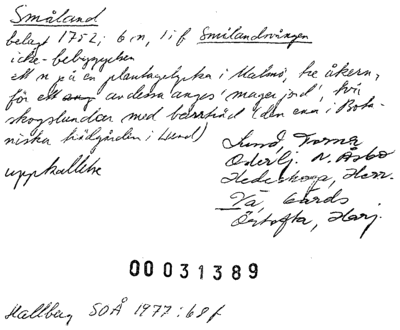 Småland
belagt 1752; 6 n, 1 i f Smålandsvången
icke-bebyggelsen
ett n på en plantagelycka i Malmö, tre åkern,
för ett av dessa anges 'mager jord', två
skogslundar med barrträd (den ena i Bota-
niska trädgården i Lund)
uppkallelse
Lund, Torna
Oderlj. N. Åsbo
Hedeskoga, Herr.
Vä, Gärds
Örtofta, Harj.
00031389
Hallberg SOÅ 1977: 68 f